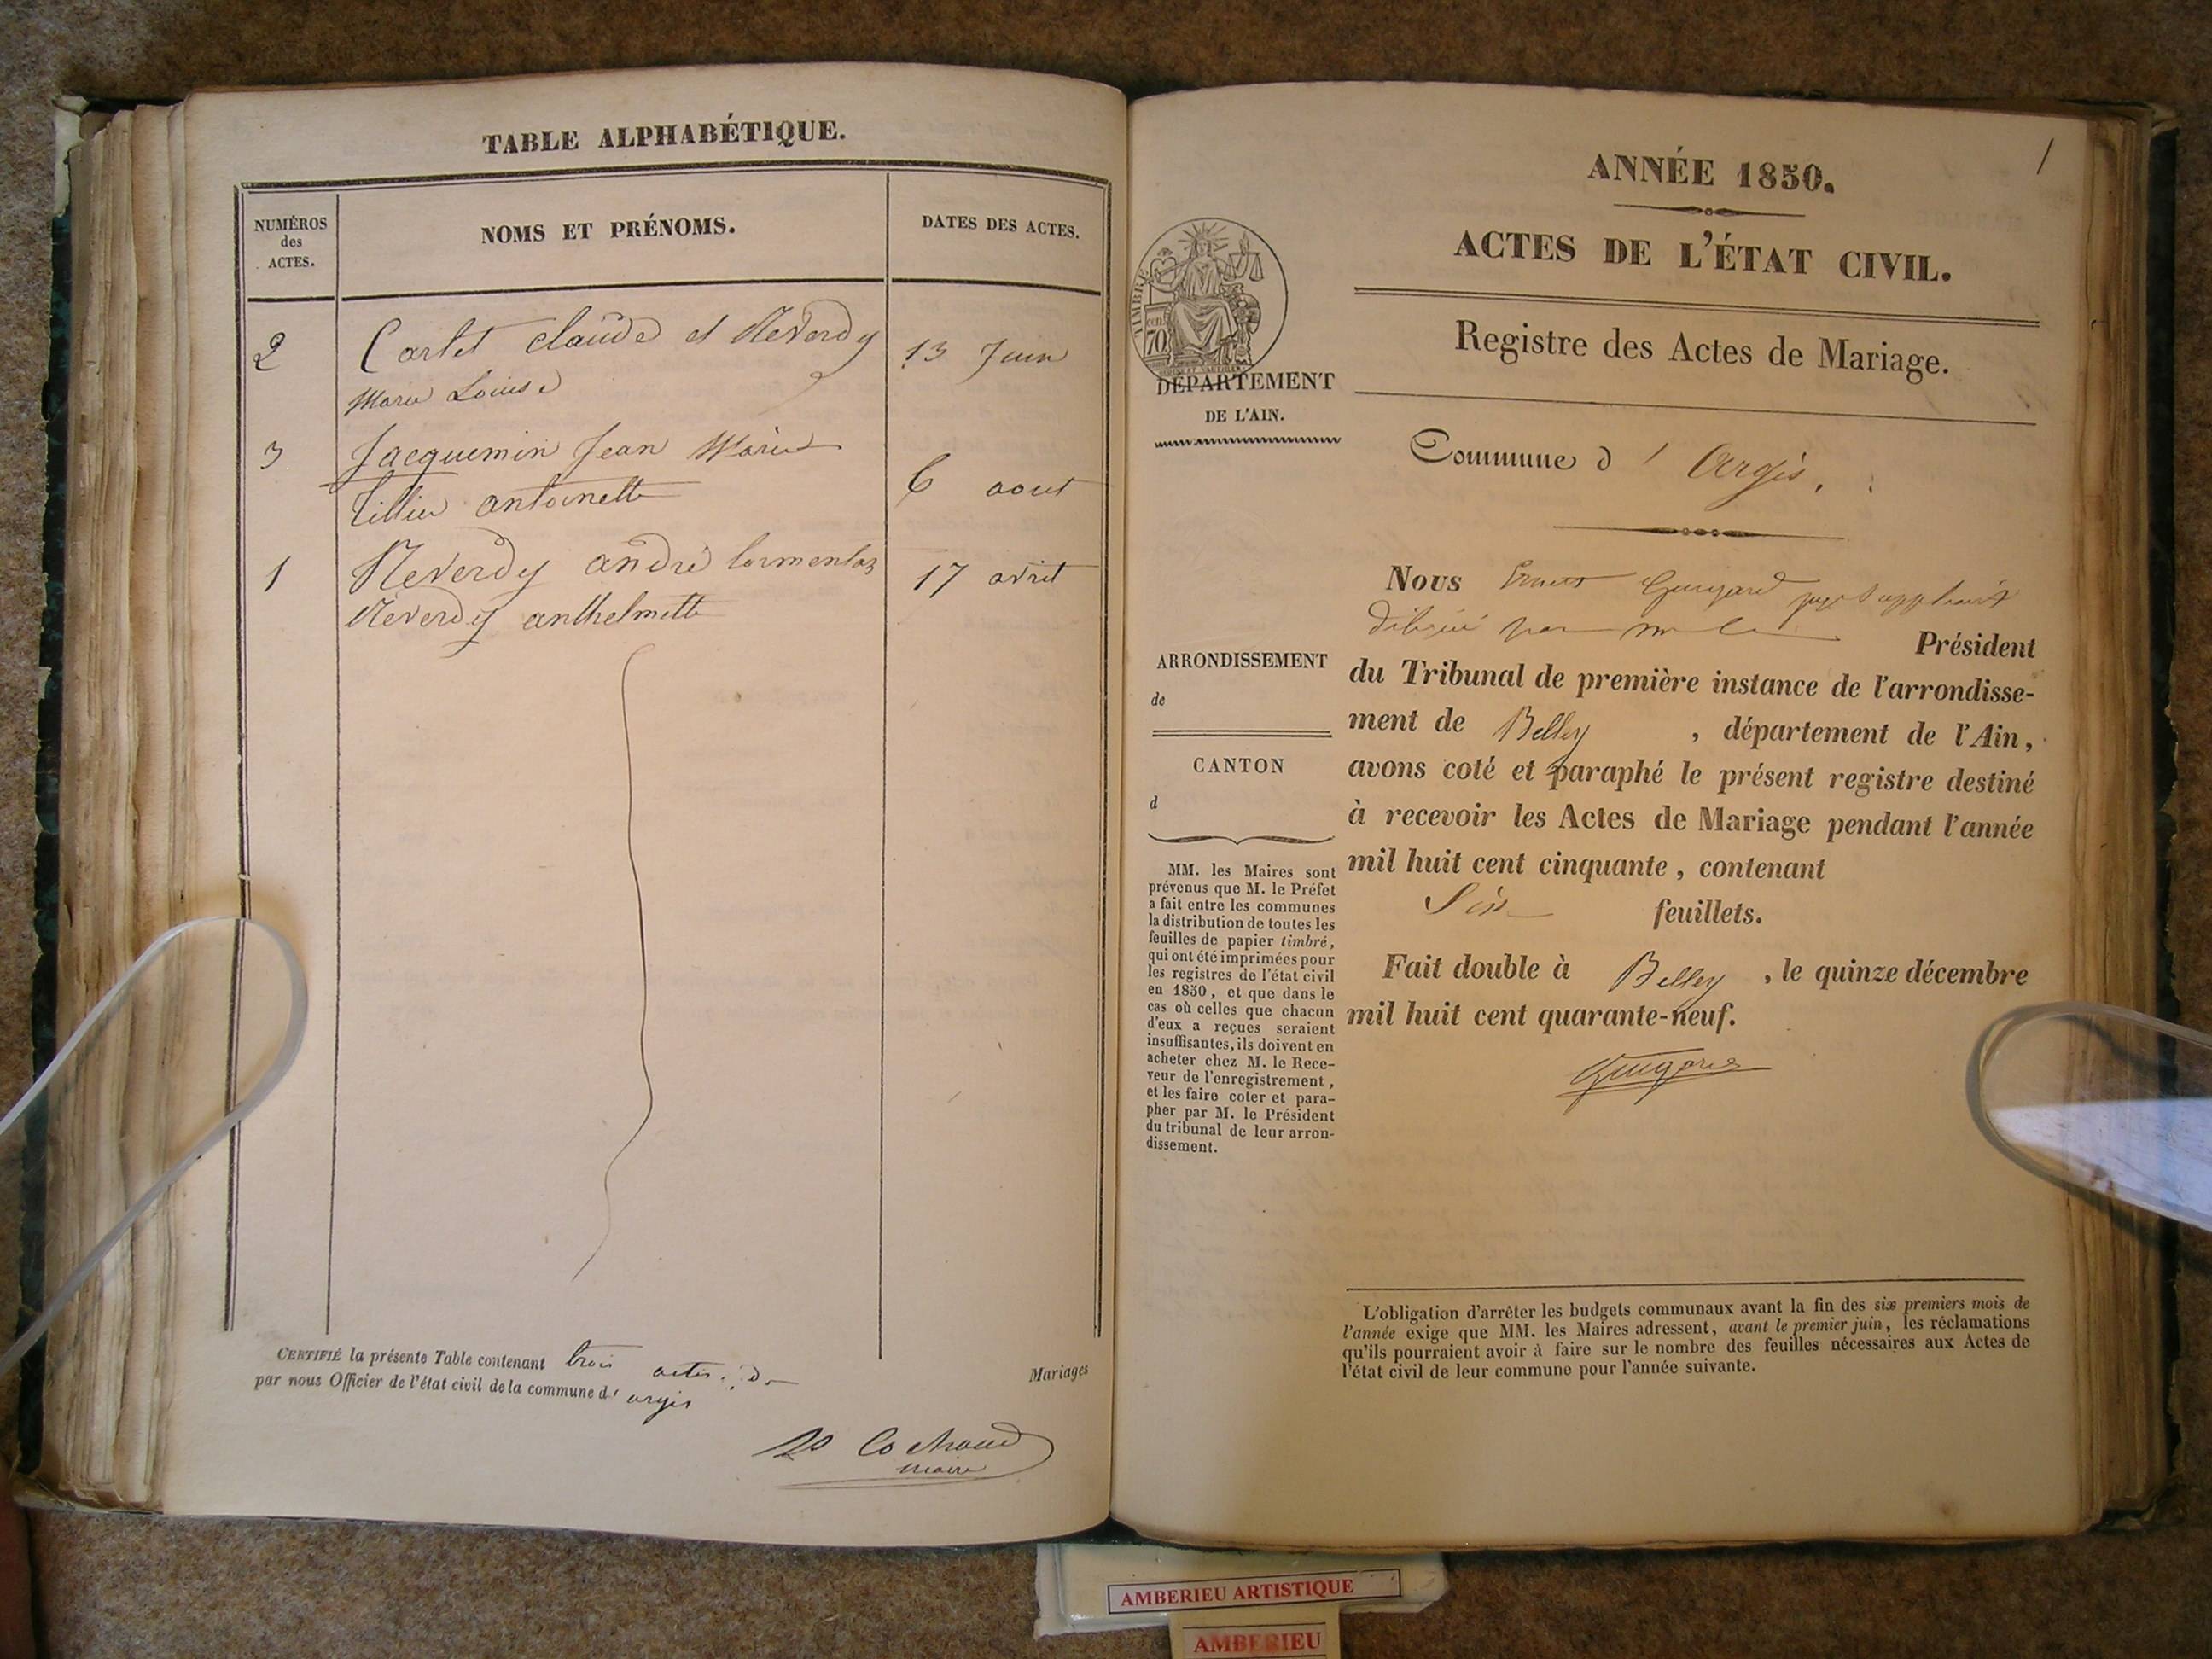 TABLE ALPHABÉTIQUE.
NUMÉROS
des
ACTES.
NOMS ET PRÉNOMS.
DATES DES ACTES.
2 Carlet claude et Reverdy 13 Juin
Marie Louise
3 Jacquemin Jean Marie
antoinette 6 aout
1 Reverdy andré 17 avril
Reverdy anthelmette
CERTIFIÉ la présente Table contenant trois actes de Mariages
par nous Officier de l'état civil de la commune d' argis
Cochaud
maire
1
ANNÉE 1850.
ACTES DE L'ÉTAT CIVIL.
Registre des Actes de Mariage.
TIMBRE
70 cent
DÉPARTEMENT
DE L'AIN.
Commune d' Argis.
Nous Guigard juge Suppléant
délégué par m le Président
du Tribunal de première instance de l'arrondisse-
ment de Belley, département de l'Ain,
avons coté et paraphé le présent registre destiné
à recevoir les Actes de Mariage pendant l'année
mil huit cent cinquante, contenant
Six feuillets.
Fait double à Belley, le quinze décembre
mil huit cent quarante-neuf.
Guigard
ARRONDISSEMENT
de
CANTON
d
MM. les Maires sont
prévenus que M. le Préfet
a fait entre les communes
la distribution de toutes les
feuilles de papier timbré,
qui ont été imprimées pour
les registres de l'état civil
en 1850, et que dans le
cas où celles que chacun
d'eux a reçues seraient
insuffisantes, ils doivent en
acheter chez M. le Rece-
veur de l'enregistrement,
et les faire coter et para-
pher par M. le Président
du tribunal de leur arron-
dissement.
L'obligation d'arrêter les budgets communaux avant la fin des six premiers mois de
l'année exige que MM. les Maires adressent, avant le premier juin, les réclamations
qu'ils pourraient avoir à faire sur le nombre des feuilles nécessaires aux Actes de
l'état civil de leur commune pour l'année suivante.
AMBERIEU ARTISTIQUE
AMBERIEU